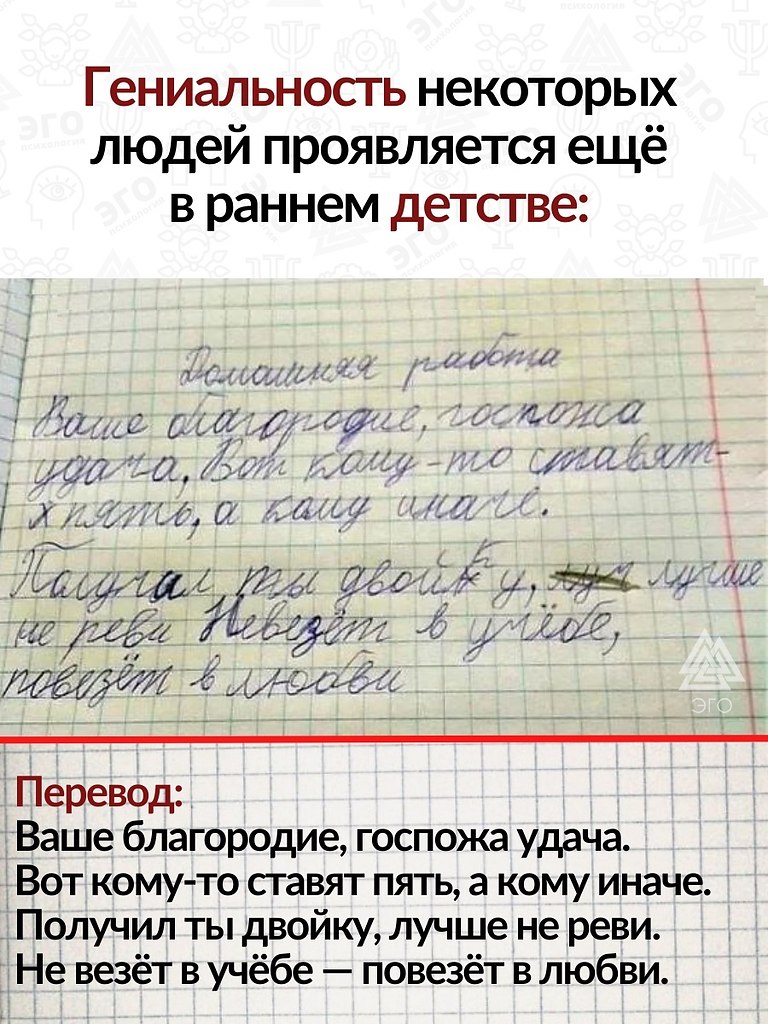 Гениальность некоторых
людей проявляется ещё
в раннем детстве:
Домашняя работа
Ваше благородие, госпожа
удача, Вот кому-то ставят-
х пять, а кому иначе.
Получал ты двойку, лучше
не реви Невезёт в учёбе,
повезёт в любви
ЭГО
Перевод:
Ваше благородие, госпожа удача.
Вот кому-то ставят пять, а кому иначе.
Получил ты двойку, лучше не реви.
Не везёт в учёбе — повезёт в любви.